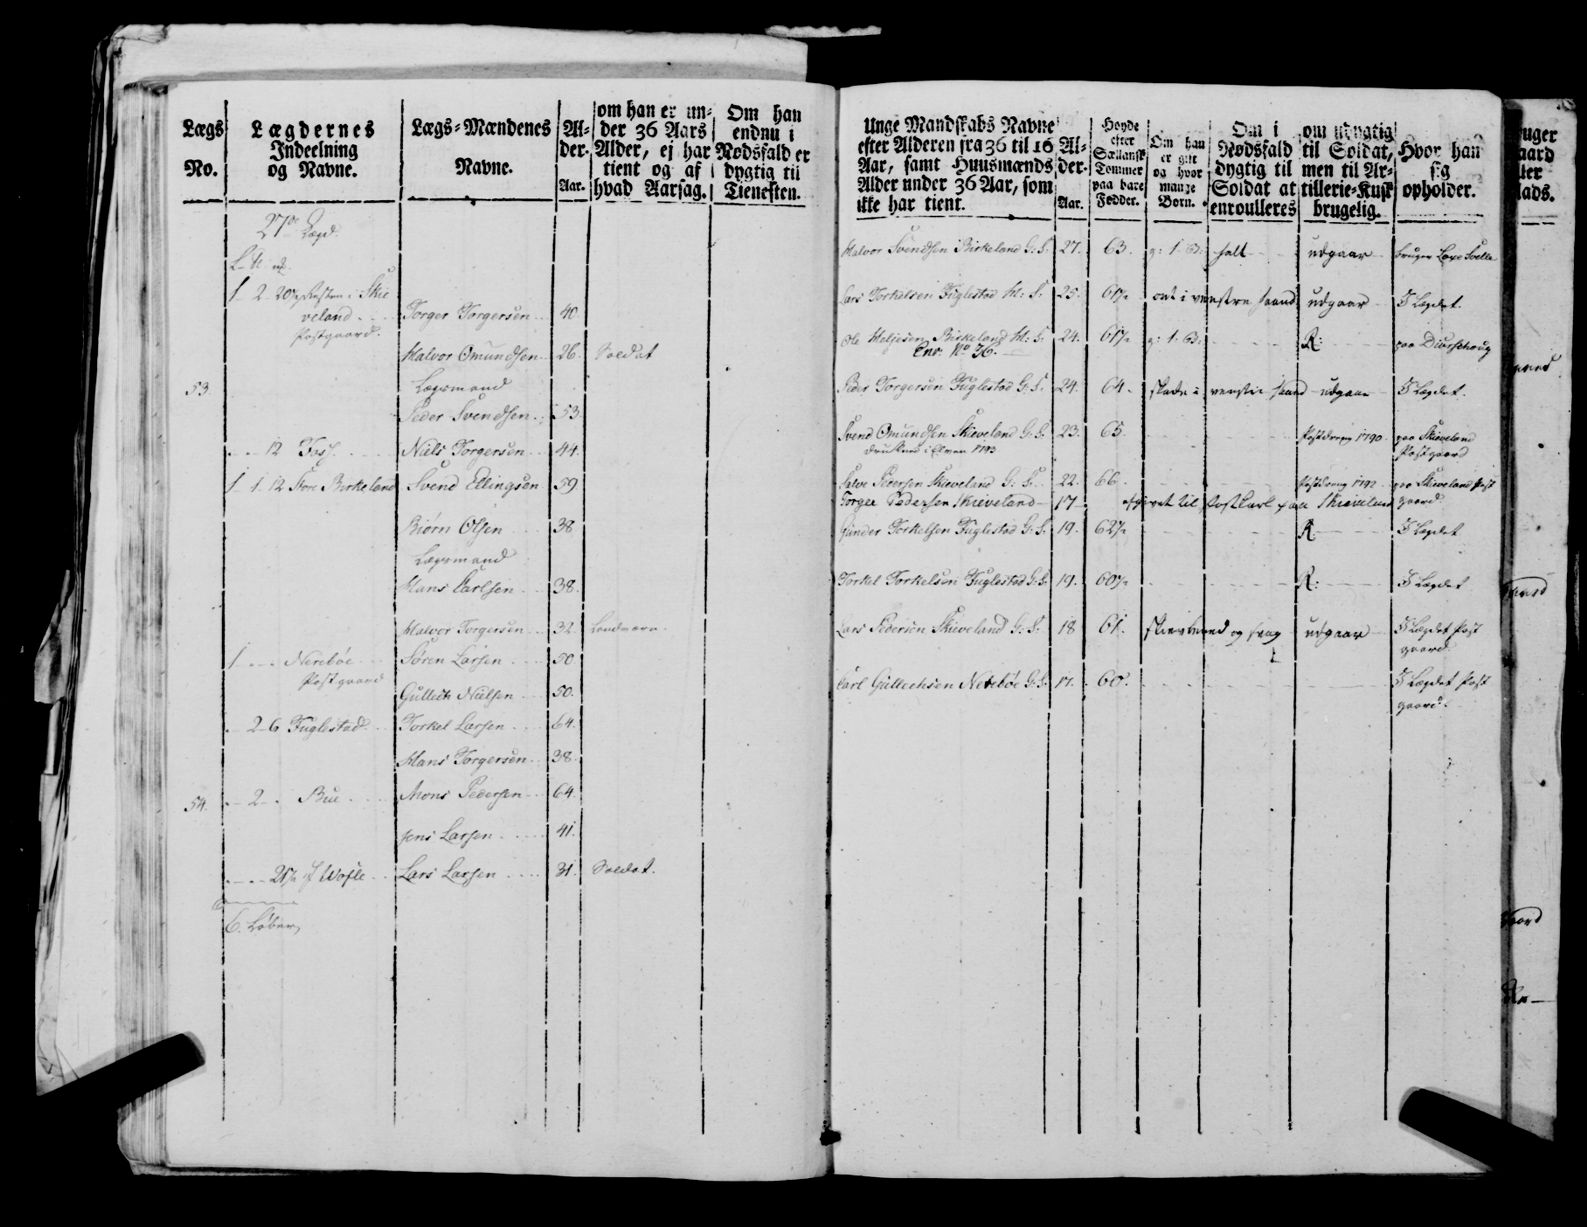 Lægs No.
Lægdernes Indeelning og Navne.
Lægs-Mændenes Navne.
Alder. Aar.
om han er under 36 Aars Alder, ej har tient og af hvad Aarsag.
Om han endnu i Nødsfald er dygtig til Tienesten.
27de Lægd.
1 2 20 Skieveland
Postgaard.
Torger Torgersen 40
Halvor Omundsen 26. Soldat
53.
Lægsmand
Peder Svendsen 53
12 Foss. Niels Torgersen 44
1 1 12 Store Birkeland Svend Ellingsen 59
Biørn Olsen 38
Lægsmand
Hans Carlsen 38.
Halvor Torgersen 32 Landværn.
1 Nerebøe Søren Larsen 50
Postgaard
Gullich Nielsen 50.
2 6 Fuglestad Torkel Larsen 64.
Hans Torgersen 38.
54. 2 Bue Mons Pedersen 64
Jens Larsen 41.
Lars Larsen 31. Soldat.
6. Løber
Unge Mandskabs Navne efter Alderen fra 36 til 16 Aar, samt Huusmænds Alder under 36 Aar, som ikke har tient.
Alder. Aar.
Høyde efter Siællandsk Tommer paa bare Fødder.
Om han er gift og hvor mange Børn.
Om i Nødsfald dygtig til Soldat at enroulleres
om udygtig til Soldat, men til Artillerie-Kusk brugelig.
Hvor han sig opholder.
Halvor Svendsen Birkeland G: S. 27. 63. g: 1. B: halt udgaar
Lars Torkelsen Fuglestad H: S. 25. 61½ i venstre haand udgaar I Lægdet.
Ole Helgesen Birkeland H: S. 24. 61½ g: 1. B: R: paa
Enr. No 36.
Peder Torgersen Fuglestad G: S. 24. 64. skade i venstre haand udgaar I Lægdet.
Svend Omundsen Skieveland G: S. 23. 65. Postdreng 1790. paa Skieveland Postgaard
druknet i Elven 1793
Salve Pedersen Skieveland G: S. 22. 66. Postdreng 1792. paa Skieveland Postgaard
Torger Pedersen Skieveland 17 til Postkarl paa Skieveland
Gunder Torkelsen Fuglestad G: S. 19. 62½ R I Lægdet
Torkel Torkelsen Fuglestad G: S. 19. 60½ R: I Lægdet
Lars Pedersen Skieveland G: S. 18 61. og svag udgaar I Lægdet Postgaard.
Carl Gullichsen Nerebøe G: S. 17. 60. I Lægdet Postgaard.